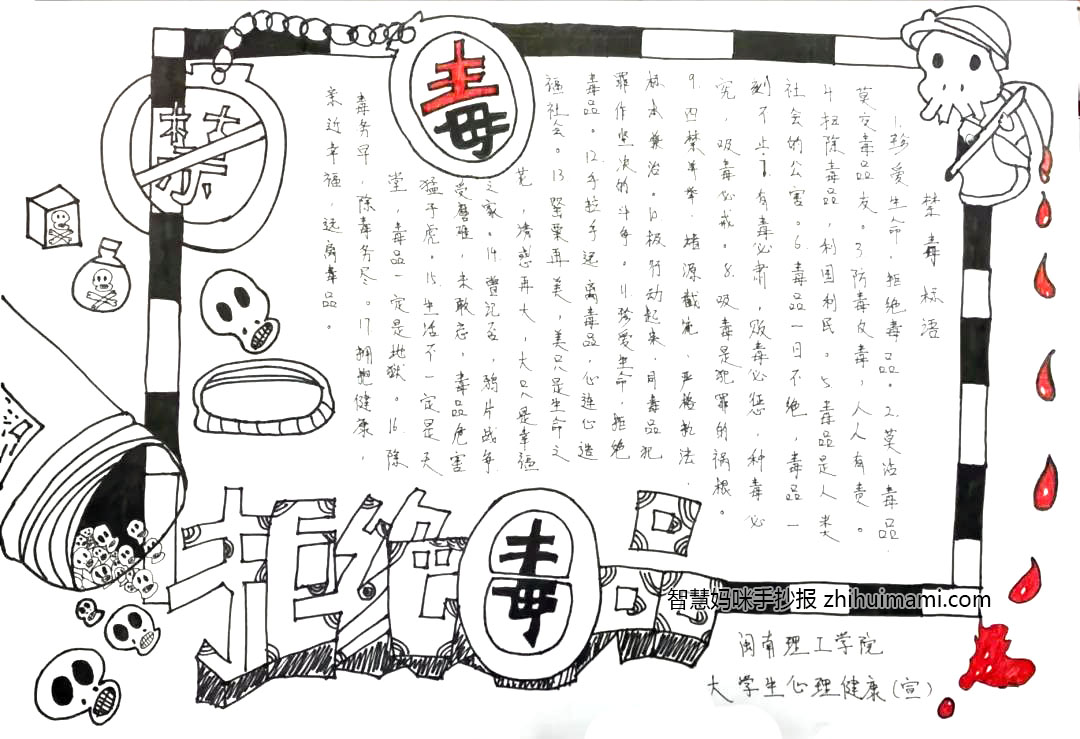 禁毒标语
1.珍爱生命,拒绝毒品。2.莫沾毒品.
莫交毒品友。3防毒反毒,人人有责。
4.扫除毒品,利国利民。5毒品是人类
社会的公害。6.毒品一日不绝,毒品一
刻不止.7.有毒必肃,贩毒必惩,种毒必
究,吸毒必戒。8.吸毒是犯罪的祸根。
9.四禁并举.堵源截流、严格执法.
标本兼治。10极行动起来,同毒品犯
罪作坚决的斗争。11.珍爱生命,拒绝
毒品。12.手拉手远离毒品,心连心造
福社会。13罂粟再美,美只是生命之
,诱惑再大,大只是幸福
之家。14.曾记否,鸦片战争
受磨难,未敢忘,毒品危害
猛于虎。15.生活不一定是天
堂,毒品一定是地狱。16.除
毒务早,除毒务尽。17.拥抱健康,
亲近幸福,远离毒品。
毒
禁
拒绝毒品
智慧妈咪手抄报 zhihuimami.com
闽南理工学院
大学生心理健康(宣)